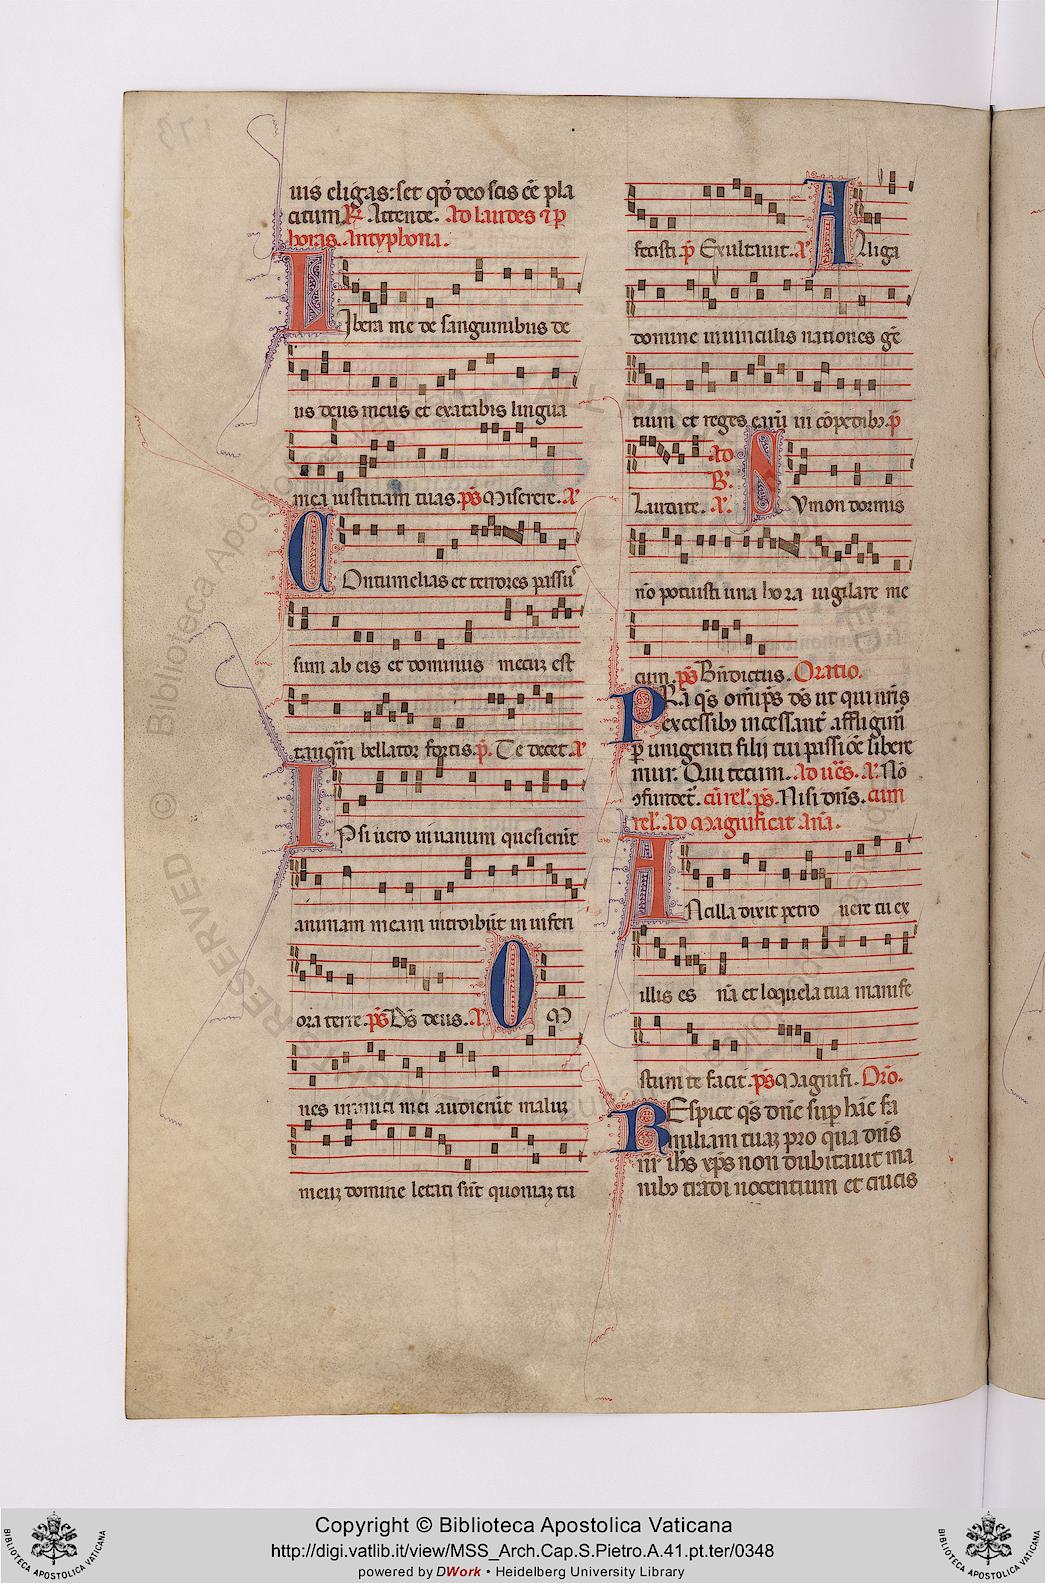 uis eligas: set qđ deo scis eē pla
citum. R. Attende. Ad laudes ⁊ p
horas. Antyphona.
Libera me de sanguinibus de
us deus meus et exaltabis lingua
mea iustitiam tuas. ps Miserere. A
Contumelias et terrores passu
sum ab eis et dominus mecuz est
tanqm̄ bellator fortis. p̄. Te decet. A
Ipsi uero in uanum quesierūt
animam meam introibūt in inferi
ora terre. ps Ds deus. A Om
nes inimici mei audierūt maluz
meuz domine letati sūt quoniaz tu
fecisti. p̄ Exultauit. A Alliga
domine in uinculis nationes gē
tium et reges earū in cōpedibꝫ. p̄
Laudate. Ad B. A. Symon dormis
nō potuisti una hora uigilare me
cum. ps Bn̄dictus. Oratio.
PRa qs om̄ps ds ut qui nr̄is
excessibꝫ incessant̄ affligim̄
p̄ unigeniti filij tui passiōe libere
mur. Qui tecum. Ad ues. A. Nō
ɔfundet̄. cū rel. ps. Nisi dn̄s. cum
rel. Ad Magnificat Ana.
ANcilla dixit petro uere tu ex
illis es nā et loquela tua manife
stum te facit. ps Magnifi. Oro.
REspice qs dn̄e sup̄ hāc fa
miliam tuaz pro qua dn̄s
nr̄ ihs xp̄s non dubitauit ma
nibꝫ tradi nocentium et crucis
© Biblioteca Apostolica Vaticana
Copyright © Biblioteca Apostolica Vaticana
http://digi.vatlib.it/view/MSS_Arch.Cap.S.Pietro.A.41.pt.ter/0348
powered by DWork • Heidelberg University Library
BIBLIOTECA APOSTOLICA VATICANA
BIBLIOTECA APOSTOLICA VATICANA